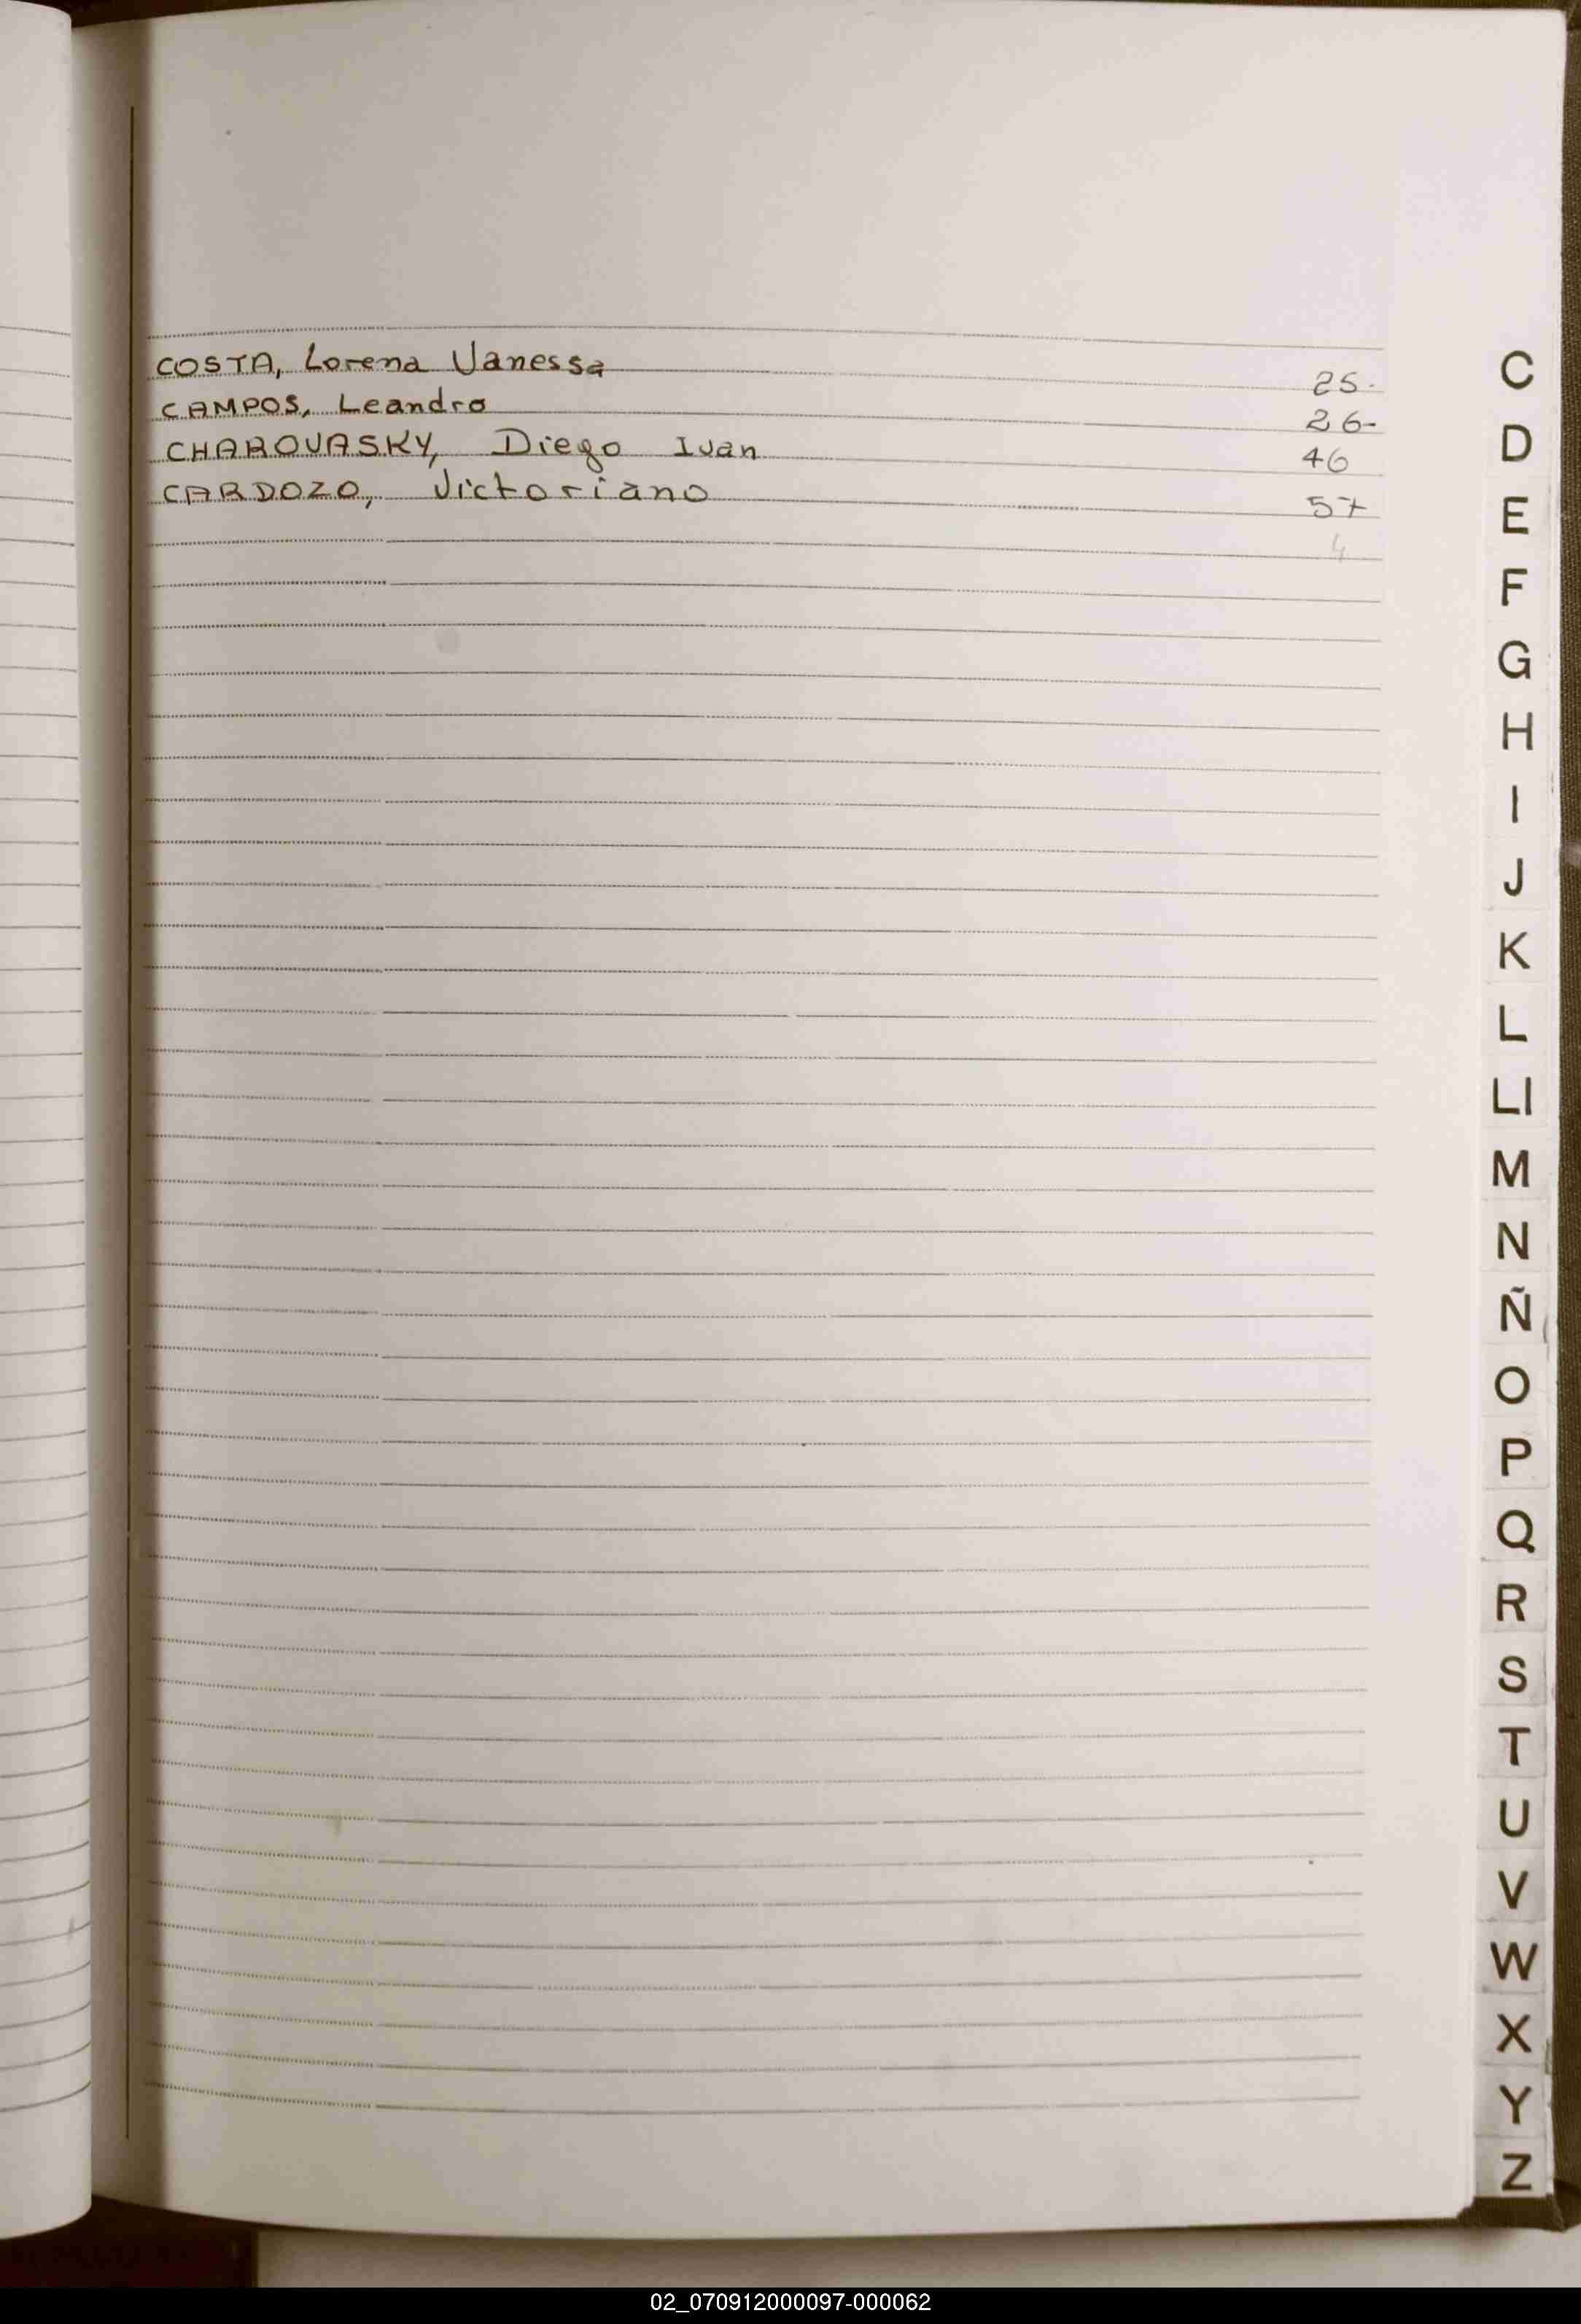 COSTA, Lorena Vanessa 25.
CAMPOS, Leandro 26-
CHAROVASKY, Diego Ivan 46
CARDOZO, Victoriano 57
4
C
D
E
F
G
H
I
J
K
L
Ll
M
N
Ñ
O
P
Q
R
S
T
U
V
W
X
Y
Z
02_070912000097-000062